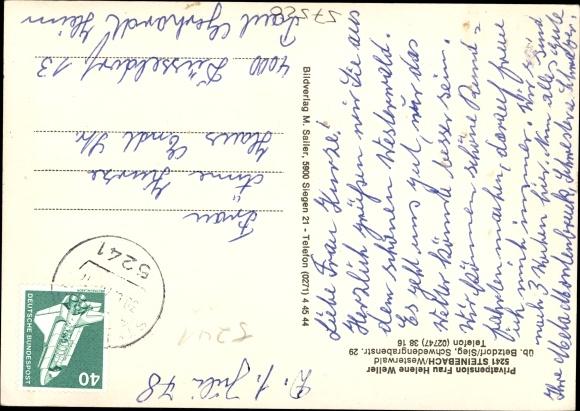 Privatpension Frau Helene Weller
5241 STEINEBACH/Westerwald
üb. Betzdorf/Sieg, Schweidgrabenstr. 29
Telefon (02747) 38 16
D. 1. Juli 78
Liebe Frau Kunze!
Herzlich grüßen wir Sie aus
dem schönen Westerwald.
Es geht uns gut, nur das
Wetter könnte besser sein.
Wir können schöne Rund-
fahrten machen, darauf freue
ich mich immer. Wir sind
noch 3 Wochen hier. Ihnen alles Gute
Ihre Schwester
Bildverlag M. Sailer, 5900 Siegen 21 - Telefon (0271) 4 45 44
5241
DEUTSCHE BUNDESPOST
40
5241
Frau
Anne Kunze
Haus Endl
4000 Düsseldorf 13
Paul Gerhardt Heim
57528